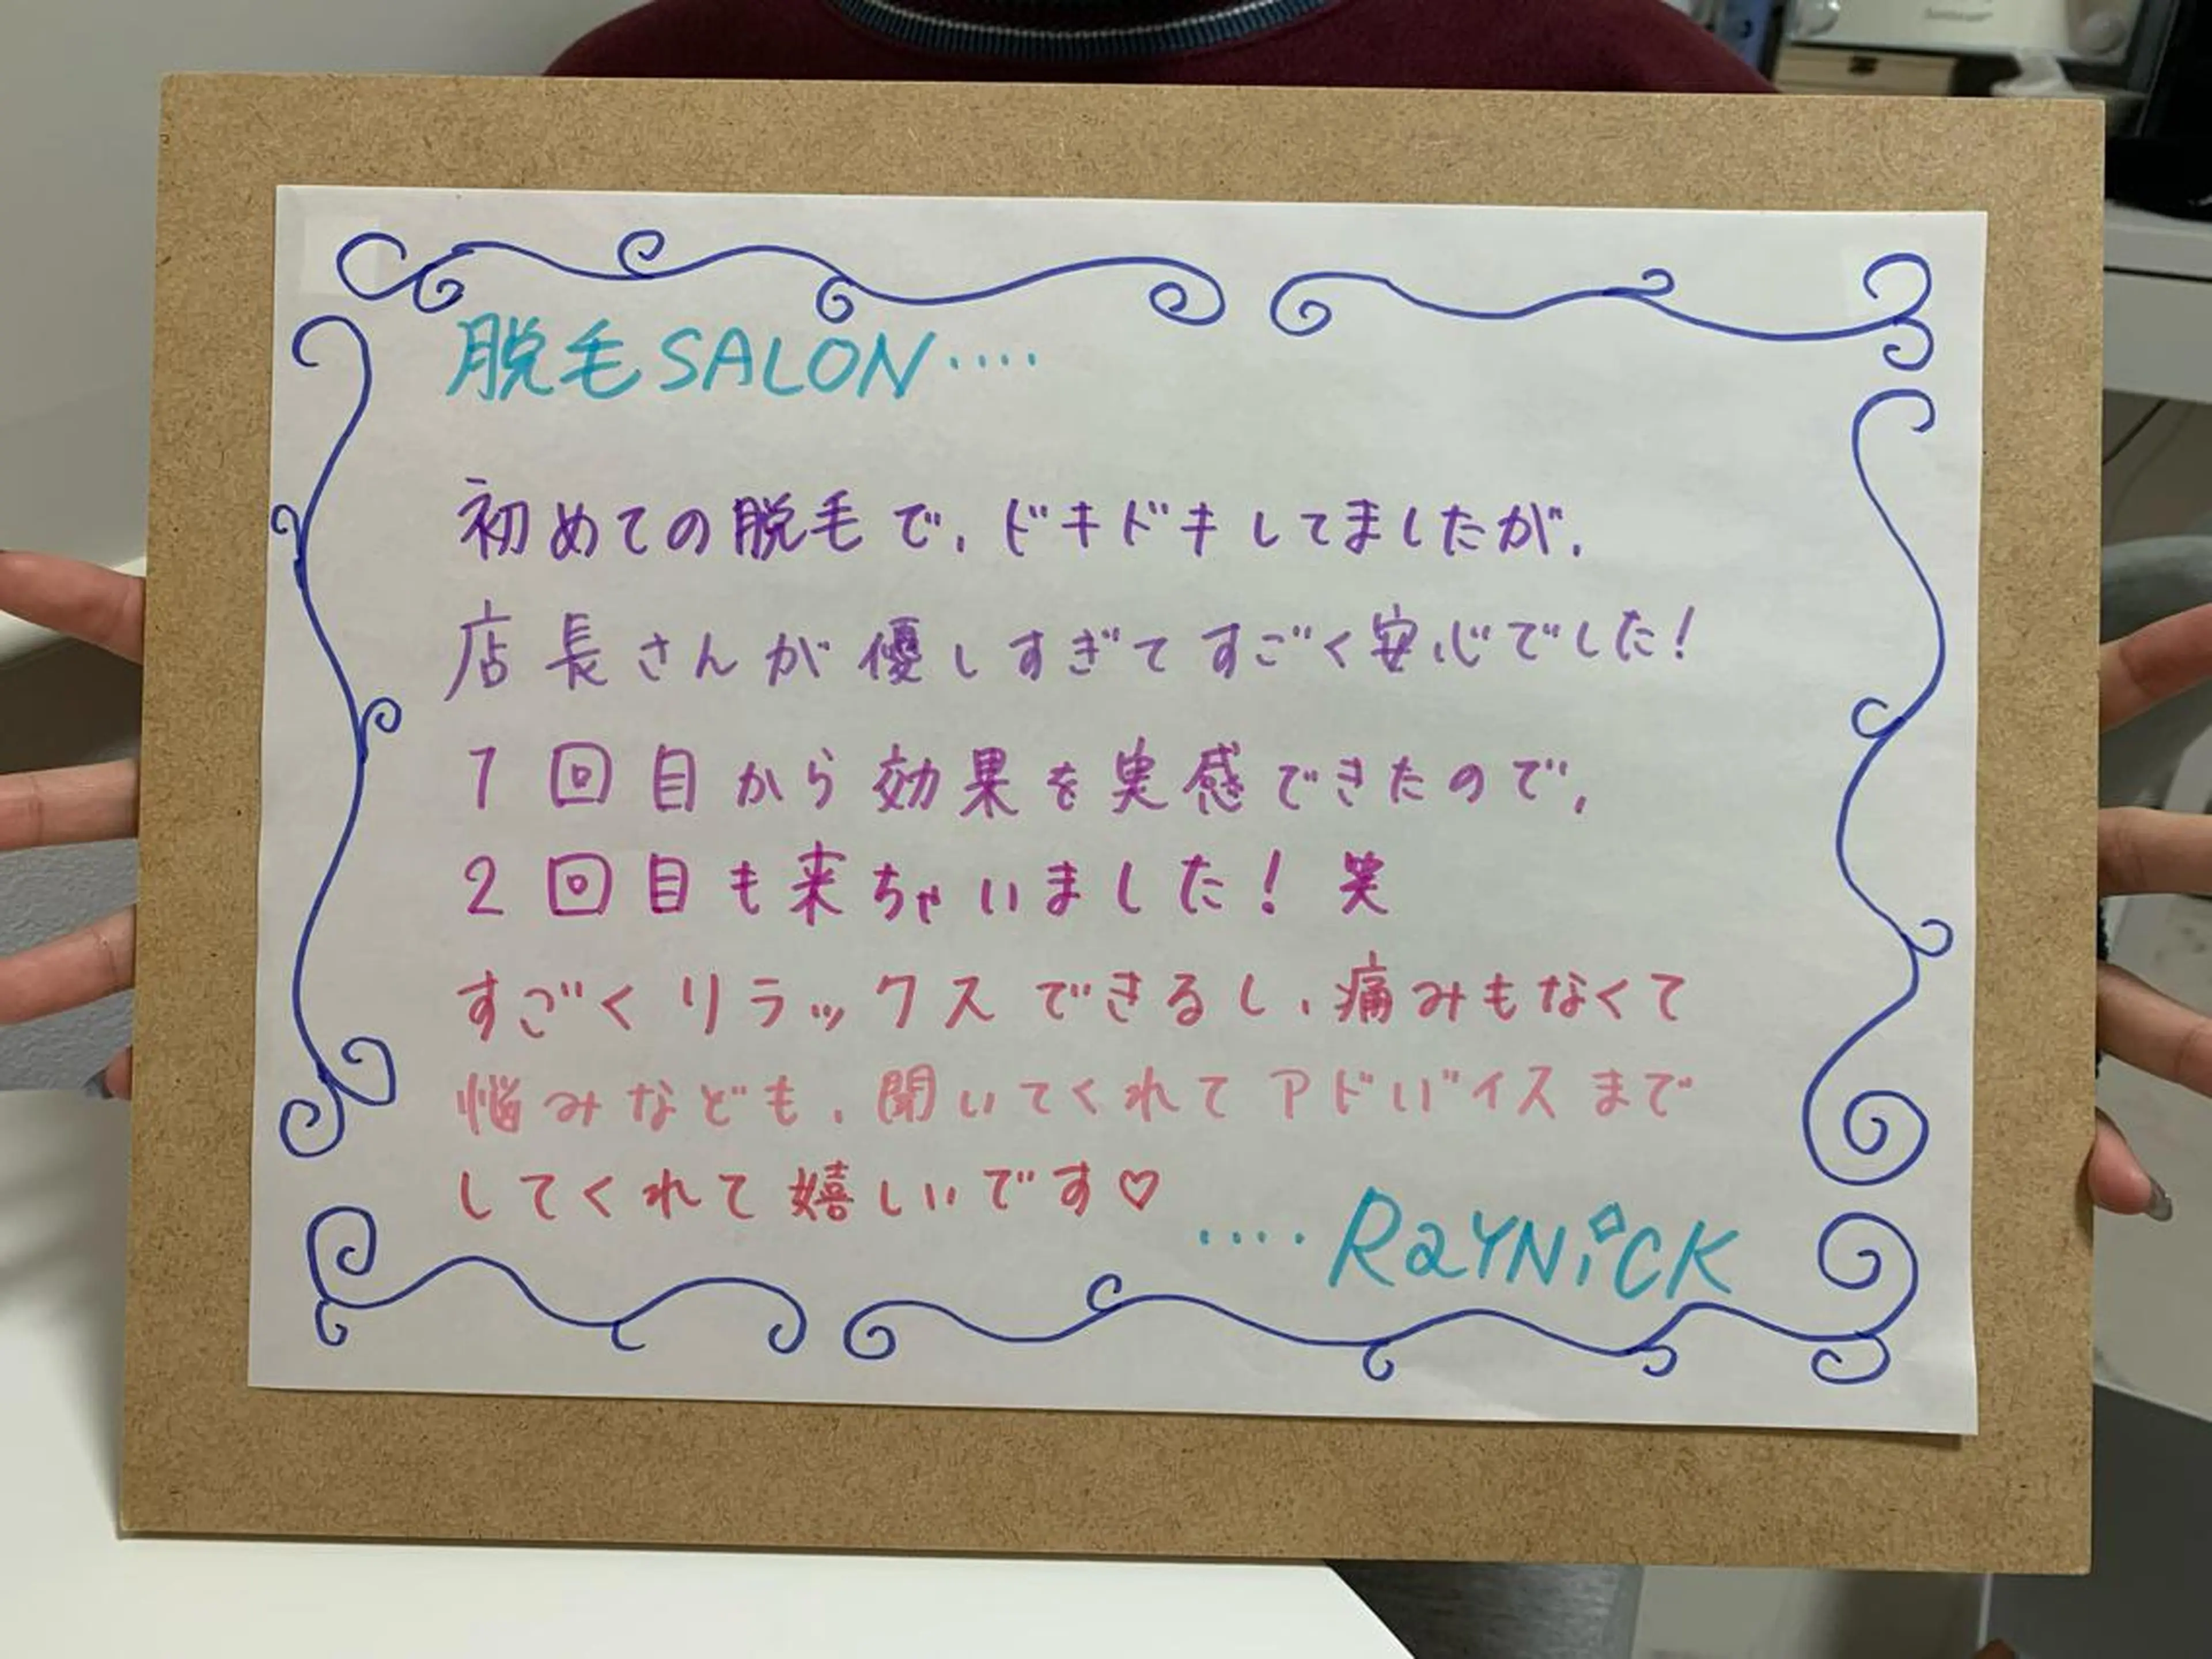 脱毛SALON‥‥
初めての脱毛で、ドキドキしてましたが、
店長さんが優しすぎてすごく安心でした!
1回目から効果を実感できたので、
2回目も来ちゃいました! 笑
すごくリラックスできるし、痛みもなくて
悩みなども、聞いてくれてアドバイスまで
してくれて嬉しいです♡
‥‥RaYNiCK